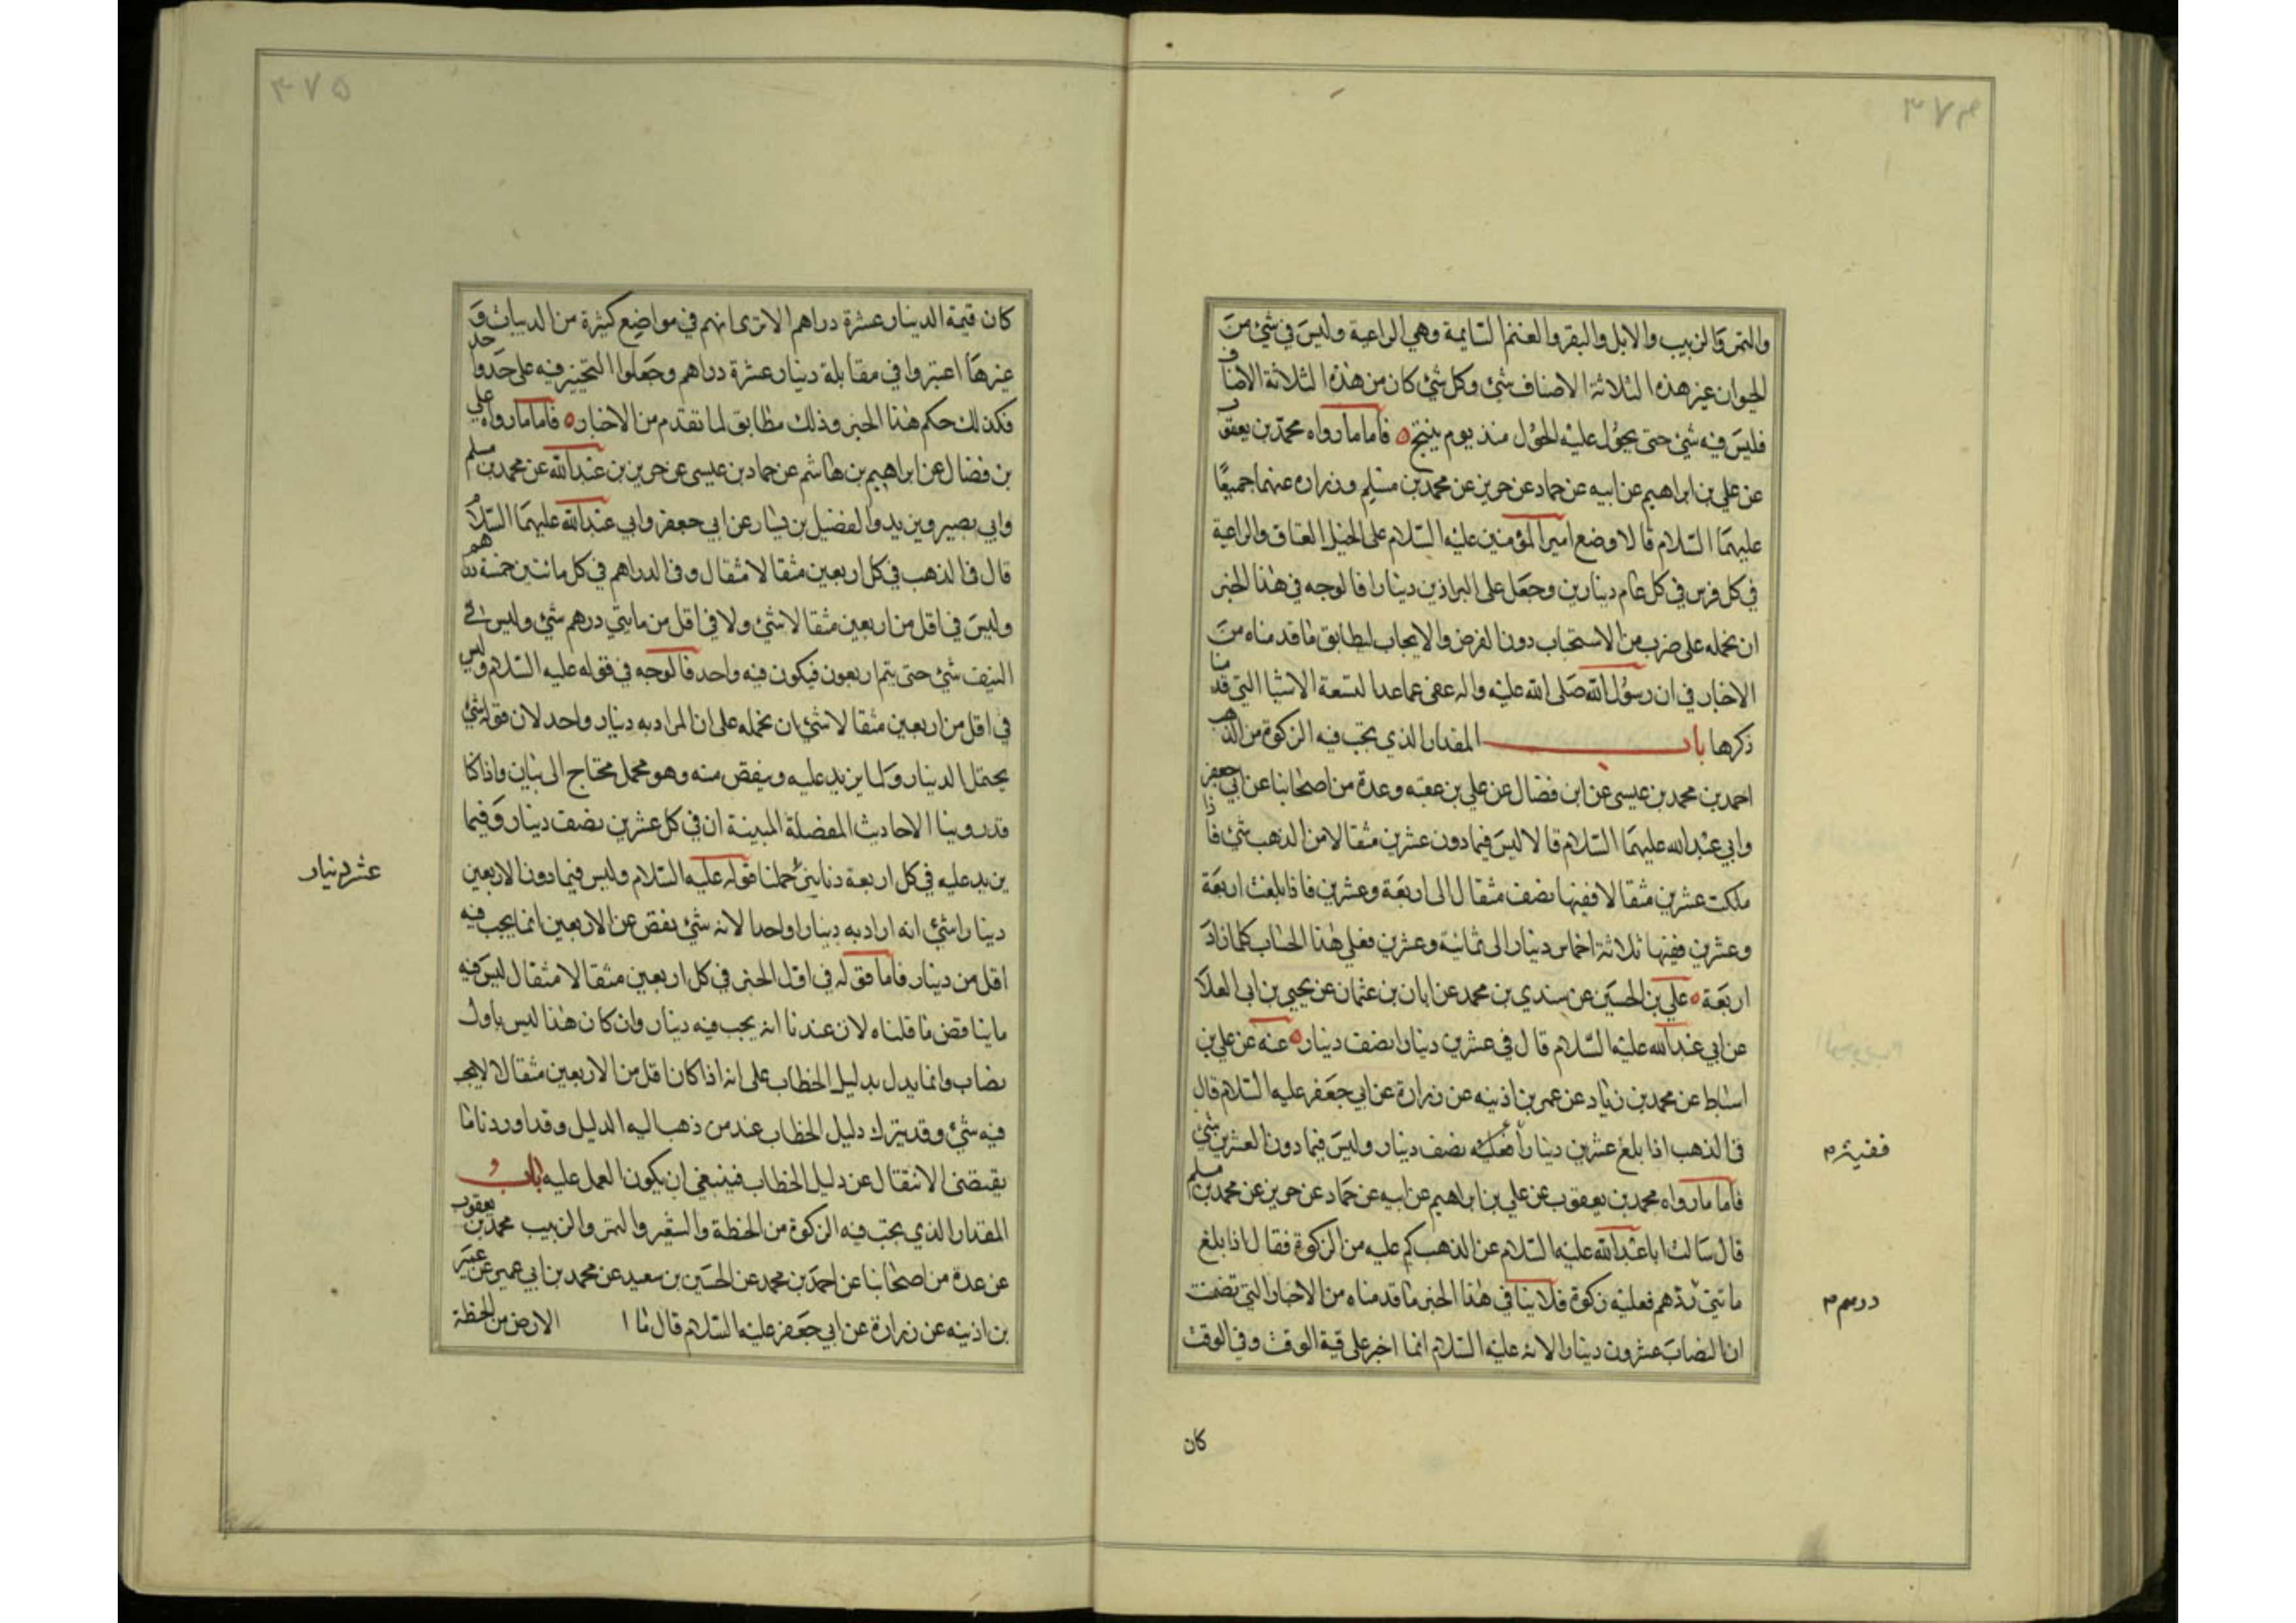 ٣٧۴
والتمر والزبيب والابل والبقر والغنم السايمة وهي الراعية وليس في شئ من
الحيوان غير هذه الثلاثة الاصناف شئ وكل شئ كان من هذه الثلاثة الاصناف
فليس فيه شئ حتى يحول عليه الحول منذ يوم ينتج ٥ فاما ما رواه محمد بن يعقوب
عن علي بن ابراهيم عن ابيه عن حماد عن حريز عن محمد بن مسلم وزراره عنهما جميعا
عليهما السلام قالا وضع امير المؤمنين عليه السلام على الخيل العتاق والراعية
في كل فرس في كل عام دينارين وجعل على البراذين دينارا فالوجه في هذا الخبر
ان نحمله على ضرب من الاستحباب دون الفرض والايجاب ليطابق ما قدمناه من
الاخبار في ان رسول الله صلى الله عليه واله عفى عما عدا التسعة الاشيا التي قدمنا
ذكرها باب المقدار الذي تجب فيه الزكوة من الذهب
احمد بن محمد بن عيسى عن ابن فضال عن علي بن عقبه وعدة من اصحابنا عن ابي جعفر
وابي عبد الله عليهما السلام قالا ليس فيما دون عشرين مثقالا من الذهب شئ فاذا
ملكت عشرين مثقالا ففيها نصف مثقال الى اربعة وعشرين فاذا بلغت اربعة
وعشرين ففيها ثلاثة اخماس دينار الى ثمانية وعشرين فعلى هذا الحساب كلما زاد
اربعة ٥ علي بن الحسين عن سندي بن محمد عن ابان بن عثمان عن يحيى بن ابي العلا
عن ابي عبد الله عليه السلام قال في عشرين دينارا نصف دينار ٥ عنه عن علي بن
اسباط عن محمد بن زياد عن عمر بن اذينه عن زرارة عن ابي جعفر عليه السلام قال
في الذهب اذا بلغ عشرين دينارا نصف دينار وليس فيما دون العشرين شئ
ففيه م
فاما ما رواه محمد بن يعقوب عن علي بن ابراهيم عن ابيه عن حماد عن حريز عن محمد بن مسلم
قال سالت ابا عبد الله عليه السلام عن الذهب كم عليه من الزكوة فقال اذا بلغ
ماتتي درهم فعليه زكوة فلا ينافي هذا الخبر ما قدمناه من الاخبار التي تضمنت
درهم م
ان النصاب عشرون دينارا لانه عليه السلام انما اخبر على قيمة الوقت وفي الوقت
كان
٣٧۵
كان قيمة الدينار عشرة دراهم الا ترى انهم في مواضع كثيرة من الديات و
غيرها اعتبروا في مقابلة دينار عشرة دراهم وجعلوا التخيير فيه على حد واحد
فكذلك حكم هذا الخبر وذلك مطابق لما تقدم من الاخبار ٥ فاما ما رواه علي
بن فضال عن ابراهيم بن هاشم عن حماد بن عيسى عن حريز بن عبد الله عن محمد بن مسلم
وابي بصير وبريد والفضيل بن يسار عن ابي جعفر وابي عبد الله عليهما السلام
قال في الذهب في كل اربعين مثقالا مثقال وفي الدراهم في كل ماتين خمسة دراهم
وليس في اقل من اربعين مثقالا شئ ولا في اقل من ماتتي درهم شئ وليس في
النيف شئ حتى يتم اربعون فيكون فيه واحد فالوجه في قوله عليه السلام وليس
في اقل من اربعين مثقالا شئ ان نحمله على ان المراد به دينار واحد لان قوله شئ
يحتمل الدينار ولما يزيد عليه وينقص منه وهو مجمل محتاج الى بيان واذا كنا
قد روينا الاحاديث المفصلة المبينة ان في كل عشرين نصف دينار وفيما
يزيد عليه في كل اربعة دنانير حملنا قوله عليه السلام وليس فيما دون الاربعين
عشر دينار
دينارا شئ انه اراد به دينارا واحدا لانه شئ ينقص عن الاربعين انما يجب فيه
اقل من دينار فاما قوله في اول الخبر في كل اربعين مثقالا مثقال ليس فيه
ما يناقض ما قلناه لان عندنا انه يجب فيه دينار وان كان هذا ليس باول
نصاب وانما يدل بدليل الخطاب على انه اذا كان اقل من الاربعين مثقالا لا يجب
فيه شئ وقد يترك دليل الخطاب عند من ذهب اليه الدليل وقد اوردنا ما
يقتضي الانتقال عن دليل الخطاب فينبغي ان يكون العمل عليه باب
المقدار الذي تجب فيه الزكوة من الحنطة والشعير والتمر والزبيب محمد بن يعقوب
عن عدة من اصحابنا عن احمد بن محمد عن الحسين بن سعيد عن محمد بن ابي عمير عن عمر
بن اذينه عن زرارة عن ابي جعفر عليه السلام قال ما ا الارض من الحنطة